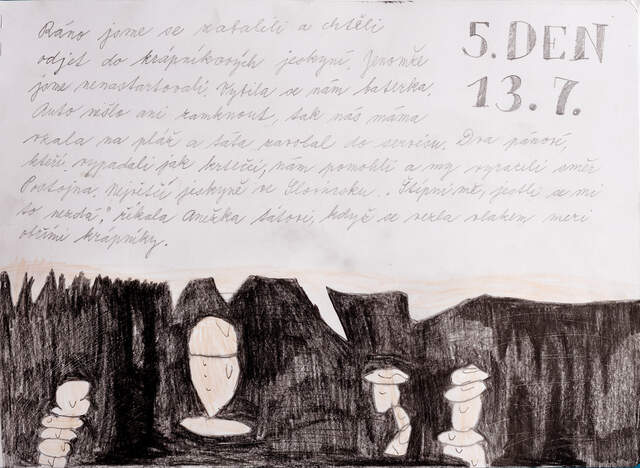 Ráno jsme se zabalili a chtěli
odjet do krápníkových jeskyní. Jenomže
jsme nenastartovali. Vybila se nám baterka.
Auto nešlo ani zamknout, tak nás máma
vzala na pláž a táta zavolal do servisu. Dva pánové,
kteří vypadali jak krtečci, nám pomohli a my vyrazili směr
Postojna. Největší jeskyně ve Slovinsku. „Štípni mě, jestli se mi
to nezdá," říkala Anežka tátovi, když se vezla vlakem mezi
obřími krápníky.
5. DEN
13. 7.